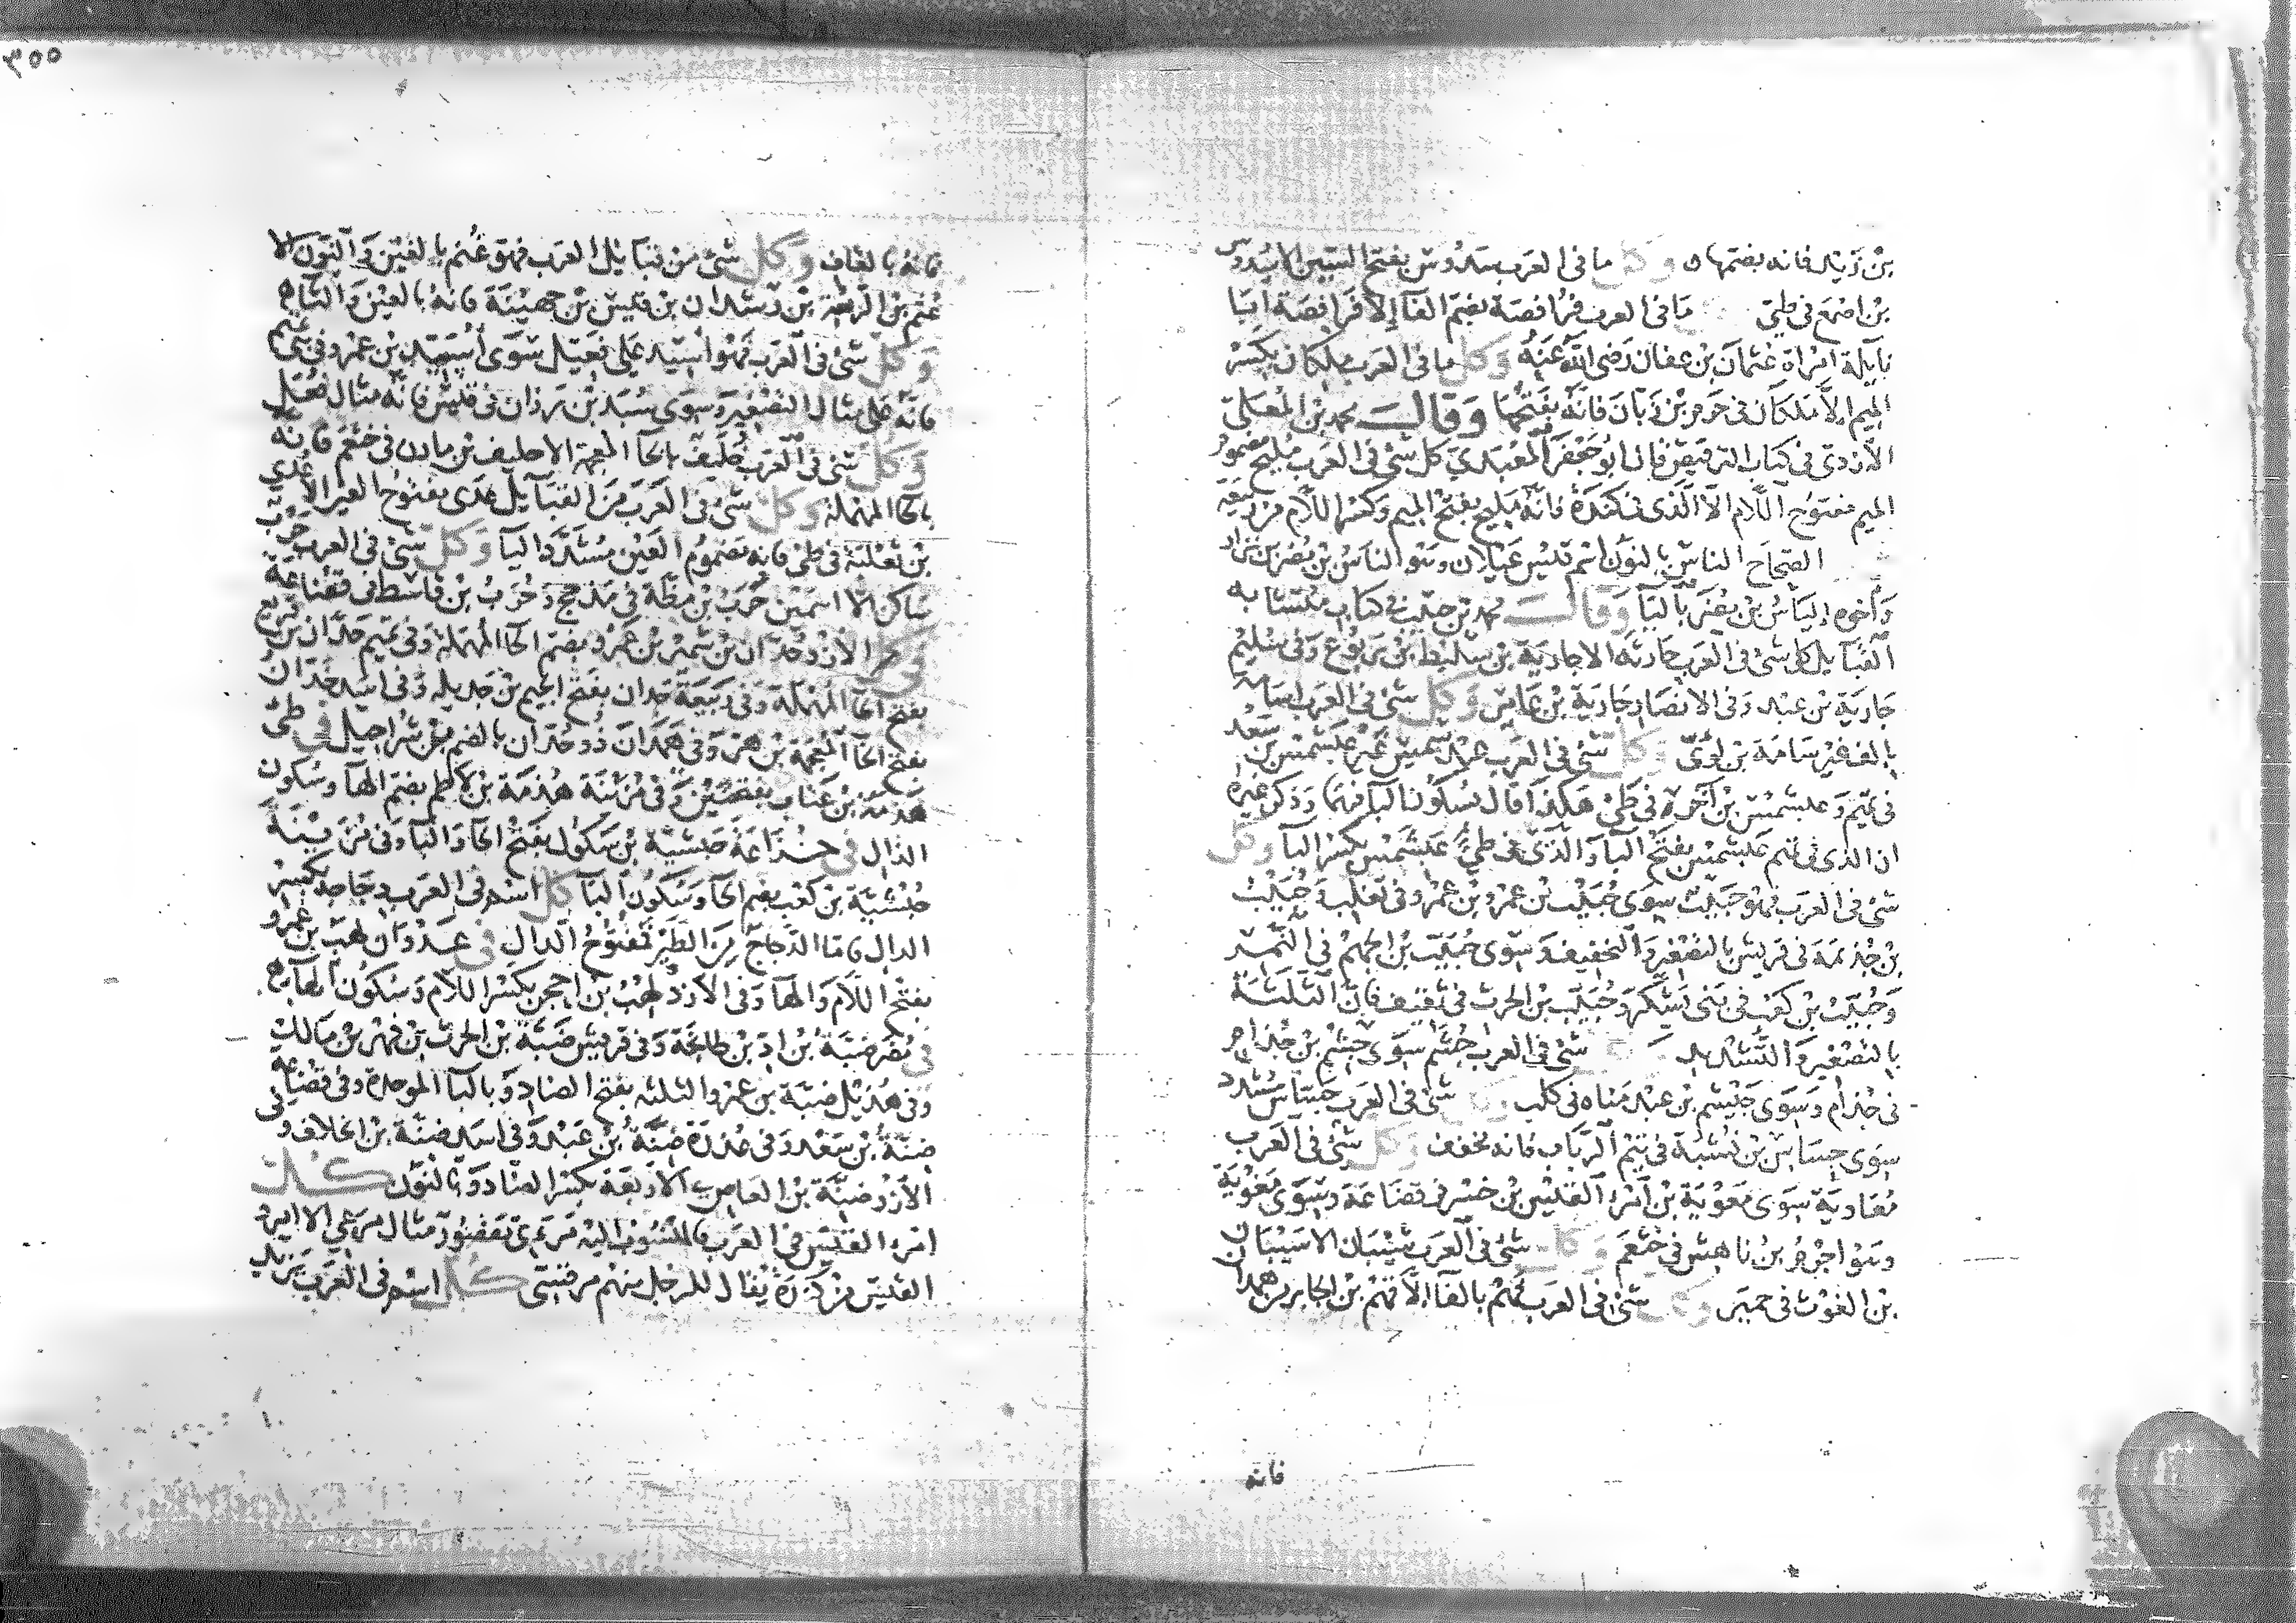 بن زيد فانه بضمها وكل ما فى العرب سدوس بفتح السين الا سدوس
بن اصمع فى طيئ ما فى العرب فرافصة بضم الفا الا فرافصة ابا
نايلة امراة عثمان بن عفان رضى الله عنه وكل ما فى العرب ملكان بكسر
الميم الا ملكان فى جرم بن زبان فانه بفتحها وقال محمد بن المعلى
الازدى فى كتاب الترقيص قال ابو جعفر العبدى كل شئ فى العرب مليح مضموم
الميم مفتوح اللام الا الذى فى كندة فانه مليح بفتح الميم وكسر اللام من ربيعة
الصحاح الناس بالنون اسم قيس عيلان وهو الناس بن مضر بن نزار
واخوه الياس بن مضر باليا وقال محمد بن حبيب فى كتاب متشابه
القبايل كل شئ فى العرب حارثة الا جارية بن سليط بن يربوع وفى سليم
جارية بن عبد وفى الانصار جارية بن عامر وكل شئ فى العرب اسامة
بالف غير سامة بن لؤى وكل شئ فى العرب عبد شمس غير عبشمس بن سعد
فى تميم وعبشمس بن اخزم فى طيئ هكذا قال بسكون البا فيهما وذكر غيره
ان الذى فى تميم عبشمس بفتح البا والذى فى طيئ عبشمس بكسر البا وكل
شئ فى العرب فهو حبيب سوى حبيب بن عمرو بن عمرو فى تغلب وحبيب
بن جذيمة فى قريش بالتصغير والتخفيف وسوى حبيب بن الجهم فى النمر
وحبيب بن كعب فى بنى يشكر وحبيب بن الحرث فى ثقيف فان الثلثة
بالتصغير والتشديد شئ فى العرب جشم سوى حبشم بن جذام
فى جذام وسوى جشم بن عبد مناه فى كلب وكل شئ فى العرب جساس مشدد
سوى جساس بن نشبة فى تيم الرباب فانه مخفف وكل شئ فى العرب
معاوية سوى معوية بن امرئ القيس بن خسر فى قضاعة وسوى معوية
وهو اجرم بن ناهس فى خثعم وكل شئ فى العرب شيبان الا سيبان
بن الغوث فى حمير وكل شئ فى العرب فهم بالفا الا قهم بن الجابر من همدان
فانه
٣٥٥
فانه بالقاف وكل شئ من قبايل العرب فهو غنم بالغين والنون الا
عثم بن الربعة بن رشدان بن قيس بن جهينة فانه بالعين والثا
وكل شئ فى العرب فهو اسيد على فعيل سوى اسيد بن عمرو فى تميم
فانه على مثال التصغير وسوى سيد بن رزان فى قيس فانه مثال فعل
وكل شئ فى العرب خليف بالخا المعجمة الا حليف بن مازن فى خثعم فانه
بالحا المهملة وكل شئ فى العرب من القبايل عدى مفتوح العين الا عدى
بن ثعلبة فى طئ فانه مضموم العين مشدد اليا وكل شئ فى العرب حرب
ساكن الا اسمين حرب بن مظة فى مذحج وحرب بن قاسط فى قضاعة
فى الازد حدان بن شمس بن عمرو بضم الحا المهملة وفى تميم حدان بن قريع
بفتح الحا المهملة وفى ربيعة جدان بفتح الجيم بن جديلة وفى اسد خدان
بفتح الخا المعجمة بن هر وفى همدان ذو حدان بالضم بن شراحيل فى طئ
هذمة بن عتاب بفتحتين وفى مزينة هذمة بن لاطم بضم الها وسكون
الذال فى خزاعة حبشية بن سكول بفتح الحا والبا وفى مزينة
حبشية بن كعب بضم الحا وسكون البا كل اسم فى العرب دجاجة بكسر
الدال فاما الدجاج من الطير فمفتوح الدال فى عدوان لهب بن عمرو
بفتح اللام والها وفى الازد لهب بن احجن بكسر اللام وسكون الها
فى مضر ضبة بن اد بن طابخة وفى قريش ضبة بن الحرث بن فهر بن مالك
وفى هذيل ضبة بن عمرو الثلثه بفتح الضاد وبالبا الموحدة وفى قضاعة
ضنة بن سعد وفى عذرة ضنة بن عبد وفى اسد ضنة بن الحلاف وفى
الازد ضنة بن العاص الاربعة بكسر الضاد وبالنون كل
امرء القيس فى العرب فالمنسوب اليه مرءى مقصور مثال مرعى الا امرء
القيس من كندة يقال للرجل منهم مرقسى كل اسم فى العرب يزيد